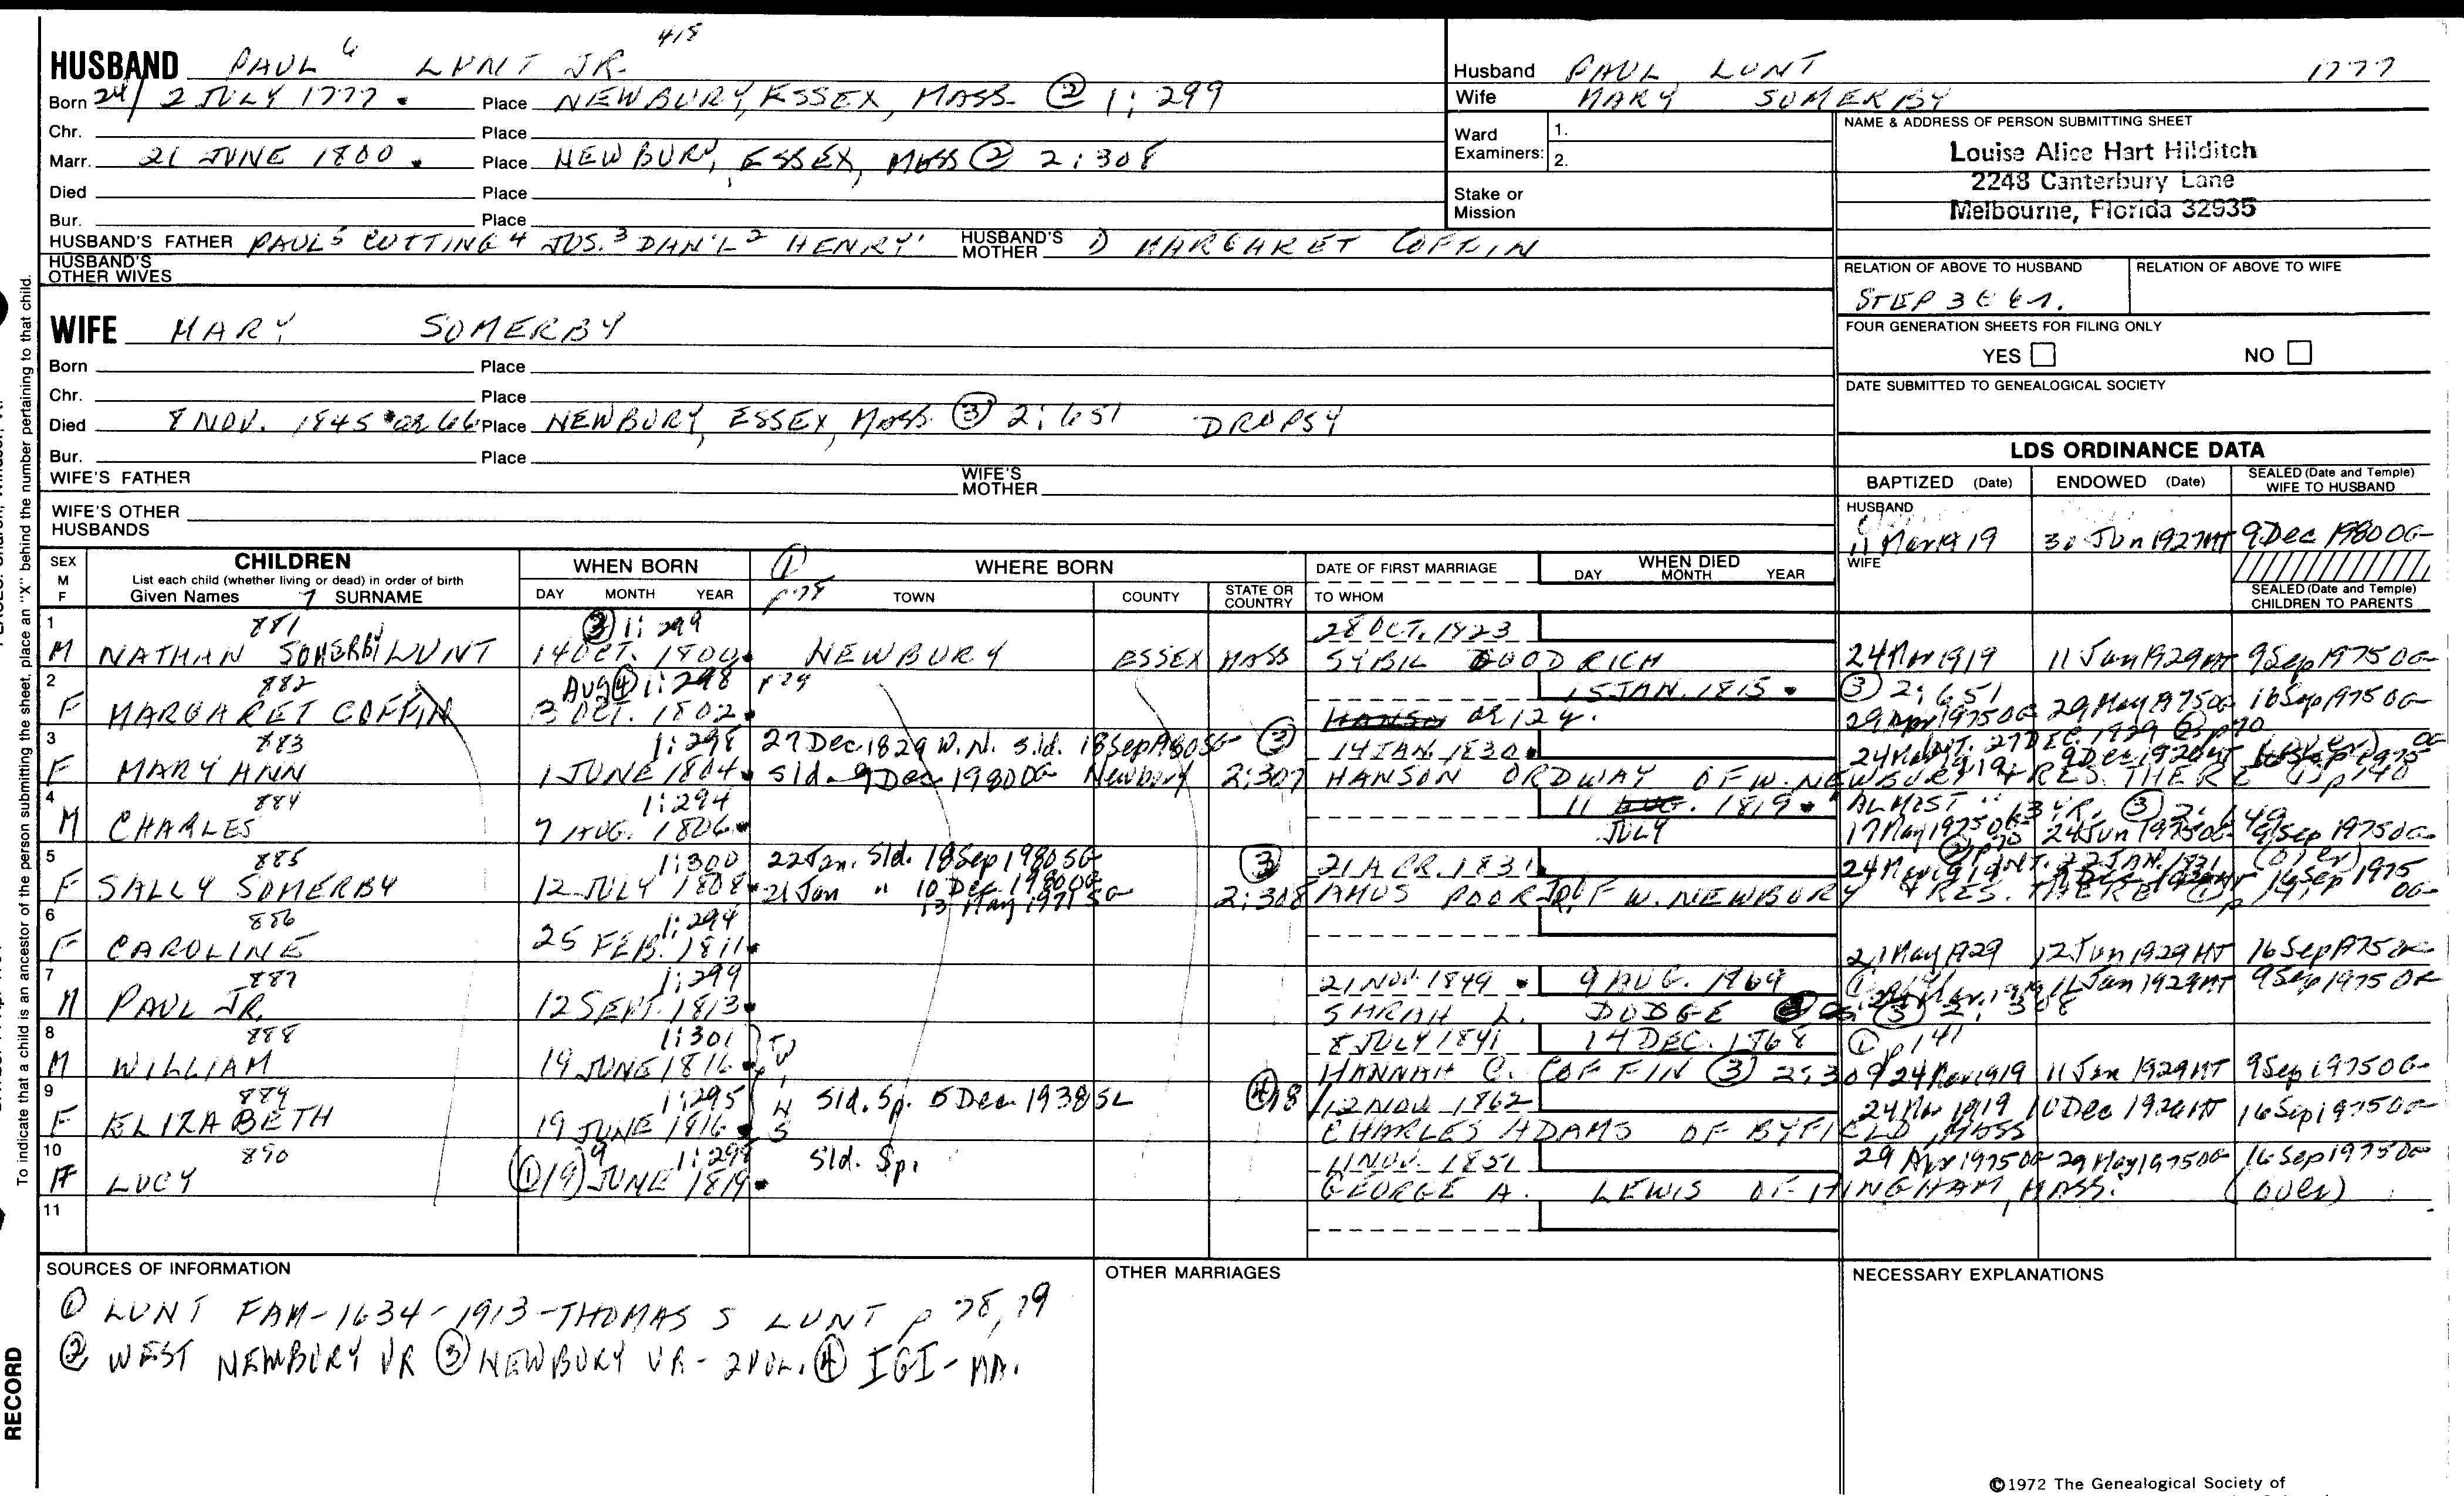 418
HUSBAND PAUL 6 LUNT JR.
Born 24/ 2 JULY 1777 . Place NEWBURY, ESSEX, MASS. ② 1: 299
Chr. Place
Marr. 21 JUNE 1800 . Place NEWBURY, ESSEX, MASS ② 2:308
Died Place
Bur. Place
HUSBAND'S FATHER PAUL 5 CUTTING 4 JOS. 3 DAN'L 2 HENRY 1 HUSBAND'S MOTHER 1) MARGARET COFFIN
HUSBAND'S OTHER WIVES
Husband PAUL LUNT 1777
Wife MARY SOMERBY
Ward Examiners: 1.
2.
Stake or Mission
NAME & ADDRESS OF PERSON SUBMITTING SHEET
Louise Alice Hart Hilditch
2248 Canterbury Lane
Melbourne, Florida 32935
RELATION OF ABOVE TO HUSBAND RELATION OF ABOVE TO WIFE
STEP
FOUR GENERATION SHEETS FOR FILING ONLY
YES NO
DATE SUBMITTED TO GENEALOGICAL SOCIETY
WIFE MARY SOMERBY
Born Place
Chr. Place
Died 8 NOV. 1845 . Place NEWBURY, ESSEX, MASS. ③ 2:651 DROPSY
Bur. Place
WIFE'S FATHER WIFE'S MOTHER
WIFE'S OTHER HUSBANDS
LDS ORDINANCE DATA
BAPTIZED (Date) ENDOWED (Date) SEALED (Date and Temple) WIFE TO HUSBAND
HUSBAND
11 Mar 1919 30 Jun 1927 MT 9 Dec 1980 OG
WIFE
SEALED (Date and Temple) CHILDREN TO PARENTS
SEX M F CHILDREN WHEN BORN ① WHERE BORN DATE OF FIRST MARRIAGE WHEN DIED
List each child (whether living or dead) in order of birth
Given Names 7 SURNAME DAY MONTH YEAR p 78 TOWN COUNTY STATE OR COUNTRY TO WHOM DAY MONTH YEAR
1 881 ③ 1:299 28 OCT. 1823
M NATHAN SOMERBY LUNT 14 OCT. 1800. NEWBURY ESSEX MASS SYBIL GOODRICH 24 Mar 1919 11 Jan 1929 MT 9 Sep 1975 OG
2 882 Aug ④ 1:298 p 79 15 JAN. 1815 . ③ 2:651
F MARGARET COFFIN 3 OCT. 1802. HANSON OR 12 y. 29 Apr 1975 OG 29 May 1975 OG 16 Sep 1975 OG
3 883 1:298 27 Dec 1829 W.N. sld. 18 Sep 1980 SG ③ 14 JAN. 1830.
F MARY ANN 1 JUNE 1804. sld. 9 Dec 1980 OG Newbury 2:307 HANSON ORDWAY OF W. NEWBURY & RES. THERE ① p 140
4 884 1:294 11 AUG. 1819 . "ALMOST" 13 YR. ③ 2:649
M CHARLES 7 AUG. 1806. JULY 17 May 1975 OG 24 Jun 1975 OG 9 Sep 1975 OG
5 885 1:300 22 Jan. sld. 18 Sep 1980 SG ③ 21 APR. 1831.
F SALLY SOMERBY 12 JULY 1808. 21 Jan " 10 Dec 1980 OG 2:308 AMOS POOR JR. OF W. NEWBURY & RES. THERE ① p 141
13 May 1971 SG
6 886 1:294
F CAROLINE 25 FEB. 1811. 21 May 1929 12 Jun 1929 MT 16 Sep 1975 OG
7 887 1:299 21 NOV. 1849 . 9 AUG. 1869 11 Jan 1929 MT 9 Sep 1975 OG
M PAUL JR. 12 SEPT. 1813. SARAH L. DODGE ③ 2:308
8 888 1:301 8 JULY 1841 14 DEC. 1868 ① p 141
M WILLIAM 19 JUNE 1816. TWINS HANNAH C. COFFIN ③ 2:309 24 Mar 1919 11 Jan 1929 MT 9 Sep 1975 OG
9 889 1:295 sld. Sp. 5 Dec 1938 SL 12 NOV. 1862 24 Mar 1919 10 Dec 1926 MT 16 Sep 1975 OG
F ELIZABETH 19 JUNE 1816. CHARLES ADAMS OF BYFIELD, MASS
10 890 9 1:298 sld. Sp. 11 NOV. 1851 29 Apr 1975 OG 29 May 1975 OG 16 Sep 1975 OG
F LUCY ① 19) JUNE 1819. GEORGE A. LEWIS OF HINGHAM, MASS. (over)
11
SOURCES OF INFORMATION OTHER MARRIAGES NECESSARY EXPLANATIONS
① LUNT FAM - 1634 - 1913 - THOMAS S LUNT p 78, 79
② WEST NEWBURY VR ③ NEWBURY VR - 2 VOL. ④ IGI - MA.
©1972 The Genealogical Society of
To indicate that a child is an ancestor of the person submitting the sheet, place an "X" behind the number pertaining to that child.
RECORD